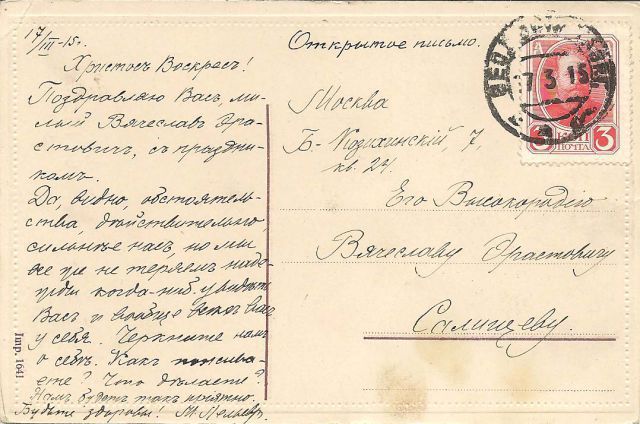 17/III-15 г.
Христосъ Воскресъ!
Поздравляю Васъ, ми-
лый Вячеславъ Эра-
стовичъ, съ праздни-
комъ.
Да, видно, обстоятель-
ства, действительно,
сильнѣе насъ, но мы
все же не теряемъ наде-
жды когда-ниб. увидѣть
Васъ и вообще всего
у себя. Черкните намъ
о себѣ. Какъ
ете? Что дѣлаете?
Намъ будетъ такъ приятно.
Будьте здоровы! М.
Открытое письмо.
Москва
Б-Козихинскій 7,
кв. 24.
Его Высокородію
Вячеславу Эрастовичу
Салищеву.
7 3 15
3 КОП 3
ПОЧТА
Imp. 1641